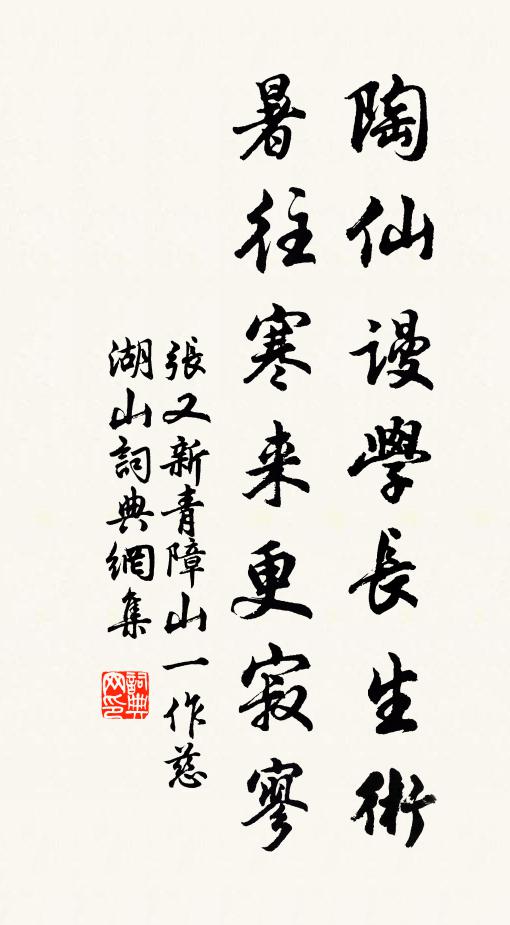 陶仙谩學長生術
暑往寒来更寂寥
張又新青障山一作慈
湖山詞典網集
詞典网印